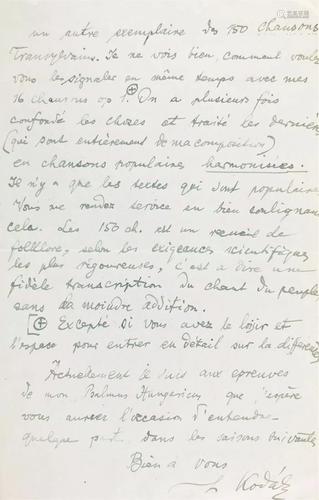 un autre exemplaire des 150 chansons
Transylvain. Je ne vois bien, comment voulez
vous les signaler en même temps avec mes
16 chansons op 1.⊕ On a plusieurs fois
confondé les choses et traité les dernières
(qui sont entièrement de ma composition)
en chansons populaires harmonisées.
Il n'y a que les textes qui sont populaires
Vous me rendez service en bien soulignant
cela. Les 150 ch. est un recueil de
folklore, selon les exigeances scientifiques
les plus rigoureuses, c'est a dire une
fidèle transcription du chant du peuple
sans la moindre addition.
[⊕ Excepté si vous avez le loisir et
l'espace pour entrer en détail sur la différence
Actuellement je suis aux epreuves
de mon Psalmus Hungaricus que j'espère
vous aurez l'occasion d'entendre
quelque part, dans les saisons suivantes
Bien a vous
Kodály